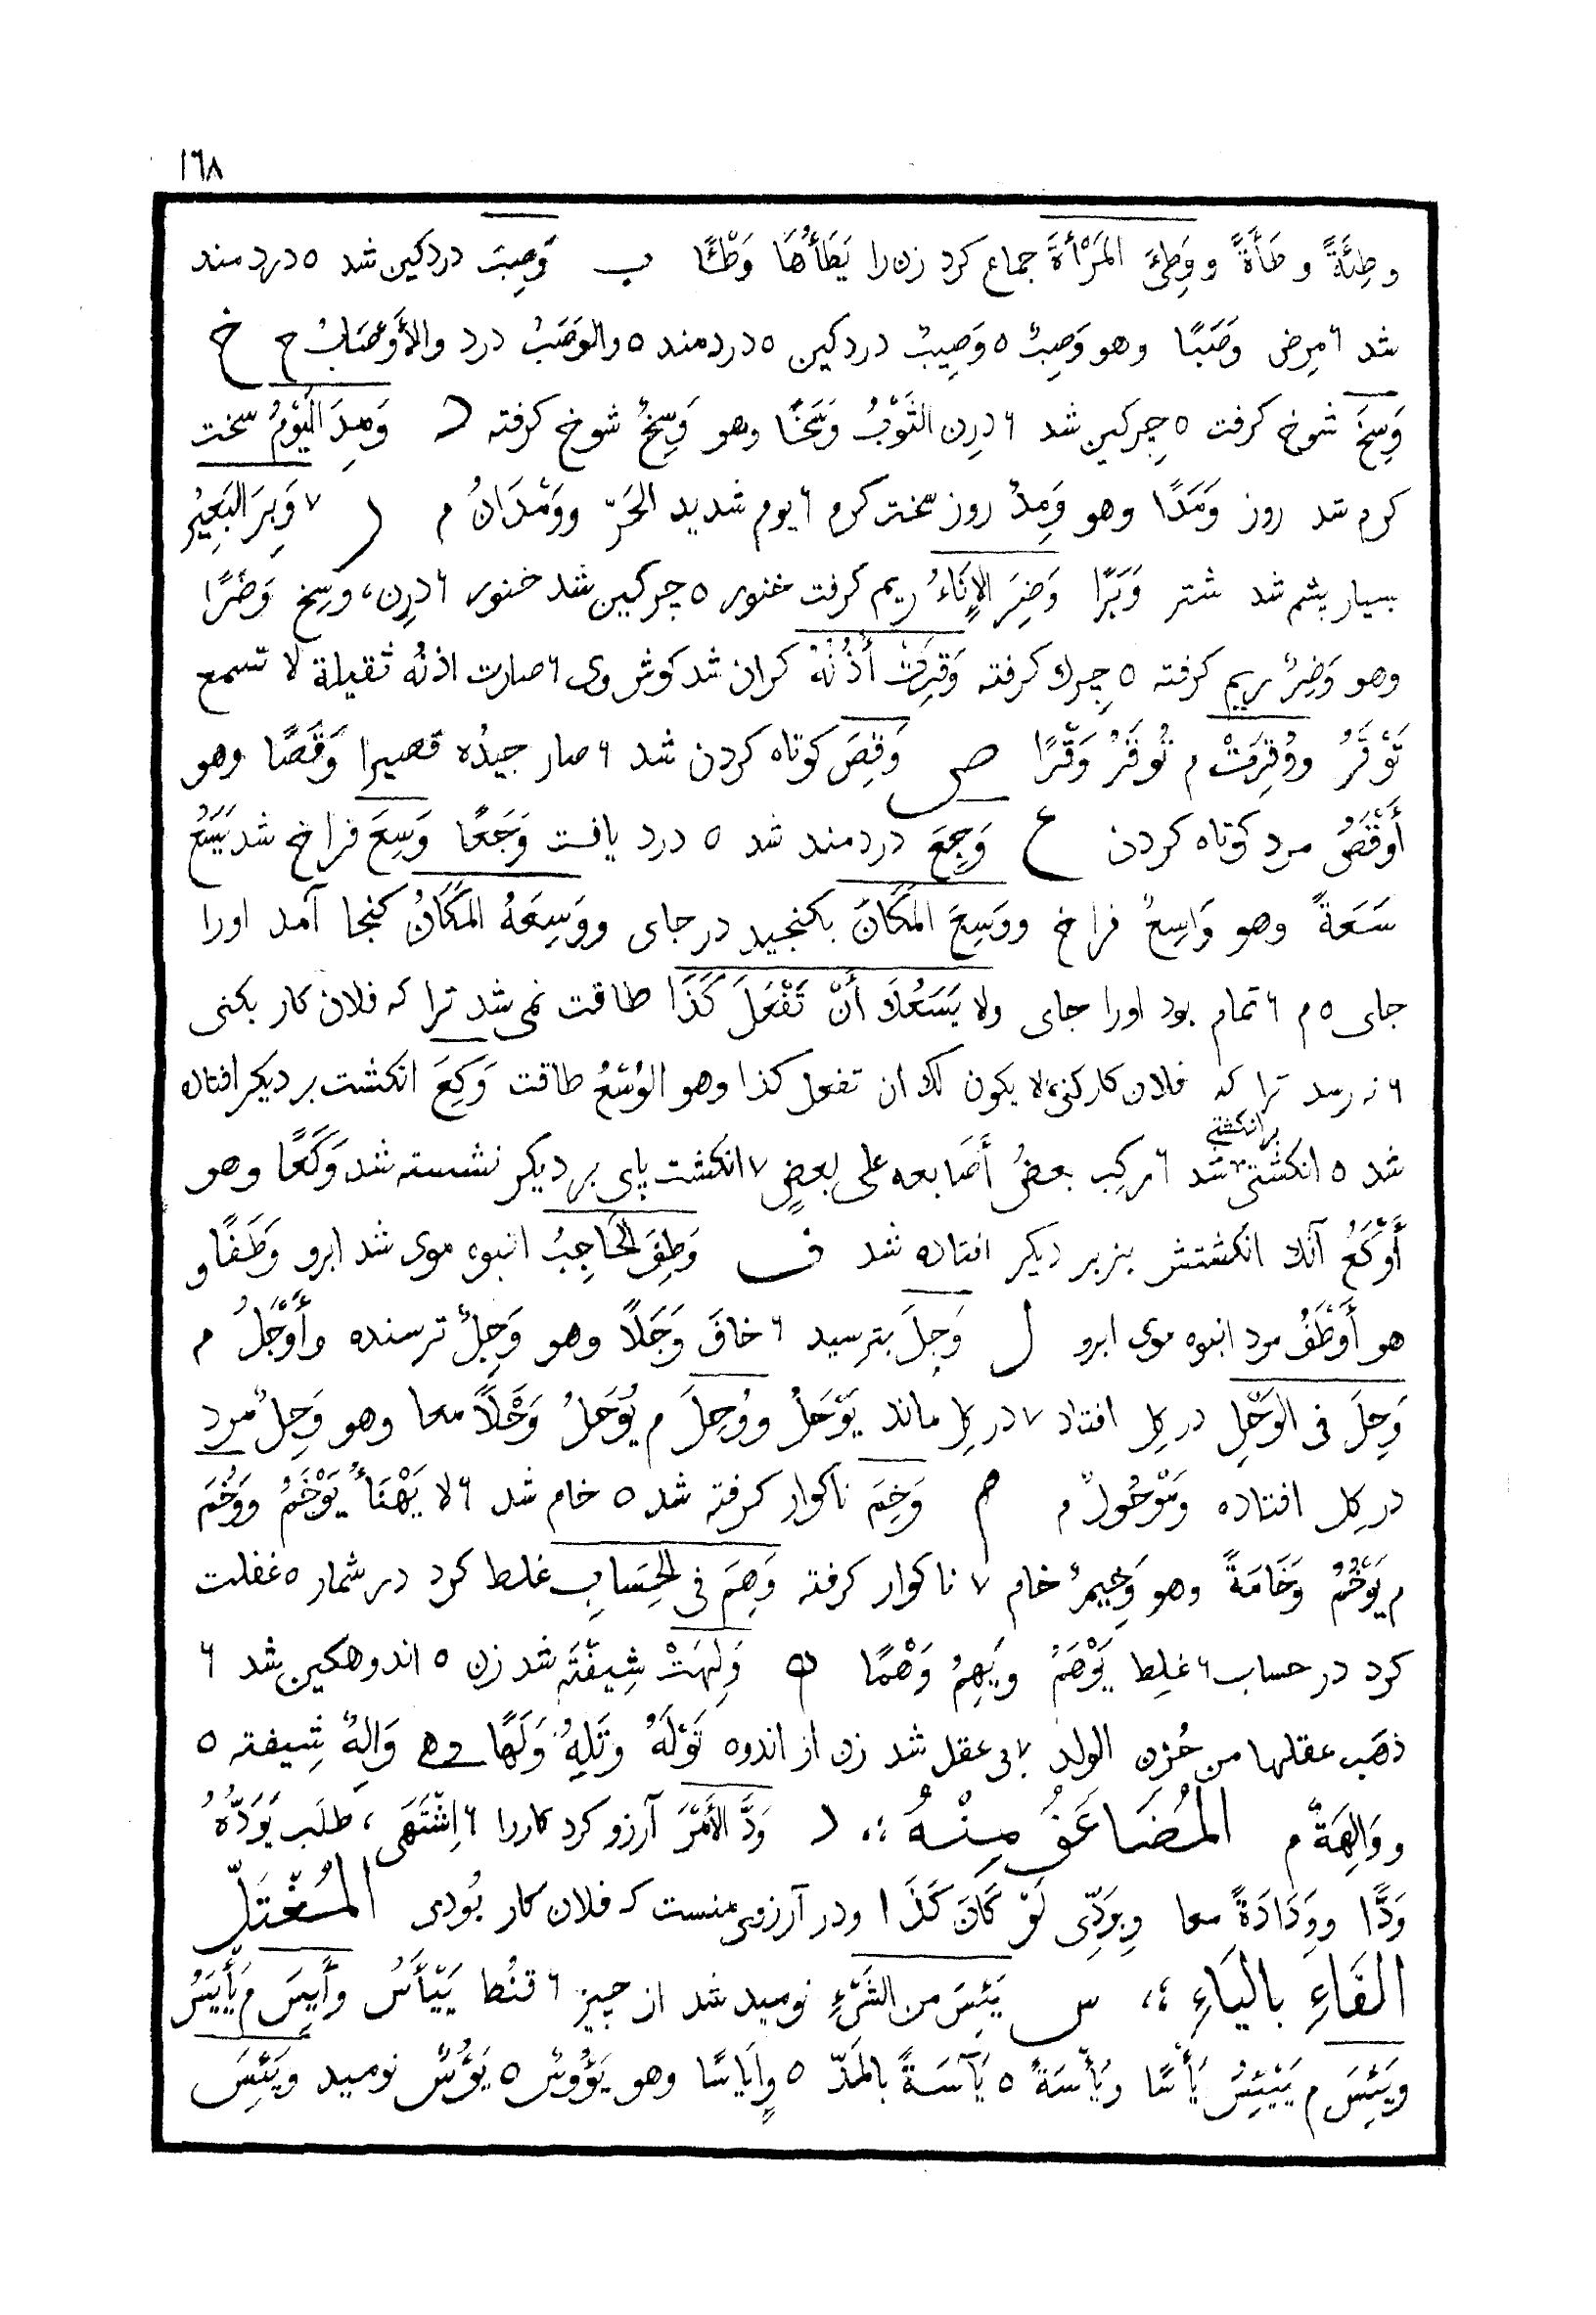 ١٦٨
وطِئَةً و طَأَةً ووَطِئَ المَرْأَةَ جماع كرد زن را يَطَأُهَا وَطْئًا ب وَصِبَ دردكين شد ٥ دردمند
شد ٦ مرِض وَصَبًا وهو وَصِبٌ ٥ وَصِيبٌ دردكين ٥ دردمند ٥ والوَصَبُ درد والأَوْصَابُ ج خ
وَسِخَ شوخ كرفت ٥ چركين شد ٦ درِن الثَوْبُ وَسَخًا وهو وَسِخٌ شوخ كرفته د وَمِدَ اليَوْمُ سخت
كرم شد روز وَمَدًا وهو وَمِدٌ روز سخت كرم ٦ يوم شديد الحَرّ ووَمْدَانُ م ر ٧ وَبِرَ البَعِيرُ
بسيار پشم شد شتر وَبَرًا وَضِرَ الإِنَاءُ ريم كرفت خنور ٥ چركين شد خنور ٦ درِن، وسِخ وَضَرًا
وهو وَضِرٌ ريم كرفته ٥ چِرك كرفته وَقِرَتْ أُذُنُهُ كران شد كوش وى ٦ صارت اذنُه ثقيلة لا تسمع
تَوْقَرُ ووُقِرَتْ م تُوقَرُ وَقْرًا ص وَقِصَ كوتاه كردن شد ٦ صار جيدُه قصيرا وَقَصًا وهو
أَوْقَصُ مرد كوتاه كردن ع وَجِعَ دردمند شد ٥ درد يافت وَجَعًا وَسِعَ فراخ شد يَسَعُ
سَعَةً وهو وَاسِعٌ فراخ ووَسِعَ المَكَانَ بكنجيد در جاى ووَسِعَهُ المَكَانُ كنجا آمد اورا
جاى ٥ م ٦ تمام بود اورا جاى ولا يَسَعُكَ أَنْ تَفْعَلَ كَذَا طاقت نمى شد ترا كه فلان كار بكنى
٦ نه رسد ترا كه فلان كار كنى، لا يكون لك ان تفعل كذا وهو الوُسْعُ طاقت وَكِعَ انكشت بر ديكر افتاده
شد ٥ انكشتى بر انكشتى شد ٦ ركِب بعضُ أَصَابعه على بعضٍ ٧ انكشت پاى بر ديكر نشسته شد وَكَعًا وهو
أَوْكَعُ آنك انكشتش بزبر ديكر افتاده شد ف وَطِفَ الحَاجِبُ انبوه موى شد ابرو وَطَفًا و
هو أَوْطَفُ مرد انبوه موى ابرو ل وَجِلَ بترسيد ٦ خافَ وَجَلاً وهو وَجِلٌ ترسنده وأَوْجَلُ م
وَحِلَ فى الوَحْلِ در كِل افتاد ٧ در كِل ماند يَوْحَلُ ووُحِلَ م يُوحَلُ وَحْلاً معا وهو وَحِلٌ مرد
در كِل افتاده ومَوْحُولٌ م م وَخِمَ ناكوار كرفته شد ٥ خام شد ٦ لا يَهْنَأُ يَوْخَمُ ووَخُمَ
م يَوْخُمُ وَخَامَةً وهو وَخِيمٌ خام ٧ ناكوار كرفته وَهِمَ فى الحِسَابِ غلط كرد در شمار ٥ غفلت
كرد در حساب ٦ غلِط يَوْهَمُ ويَهِمُ وَهْمًا ه وَلِهَتْ شِيفْتَه شد زن ٥ اندوهكين شد ٦
ذهَب عقلها من حُزن الولد ٧ بى عقل شد زن از اندوه تَوْلَهُ وتَلِهُ وَلَهًا وهى وَالِهٌ شِيفته ٥
ووَالِهَةٌ م المُضَاعَفُ مِنْهُ ؛، د وَدَّ الأَمْرَ آرزو كرد كاررا ٦ اِشْتَهَى، طلَب يَوَدُّهُ
وَدًّا ووَِدَادَةً معا وبِوَدِّى لَوْ كَانَ كَذَا ودر آرزوى منست كه فلان كار بُودى المُعْتَلّ
الفَاءِ بالياءِ ؛، س يَئِسَ من الشَىْءِ نوميد شد از چيز ٦ قنُط يَيْأَسُ وأَيِسَ م يَأْيَسُ
ويَئِسَ م يَيْئِسُ يَأْسًا ويَأْسَةً ٥ يَآسَةً بالمَدّ ٥ وإِيَاسًا وهو يَؤُوسٌ ٥ يَؤُسٌ نوميد ويَئِسَ